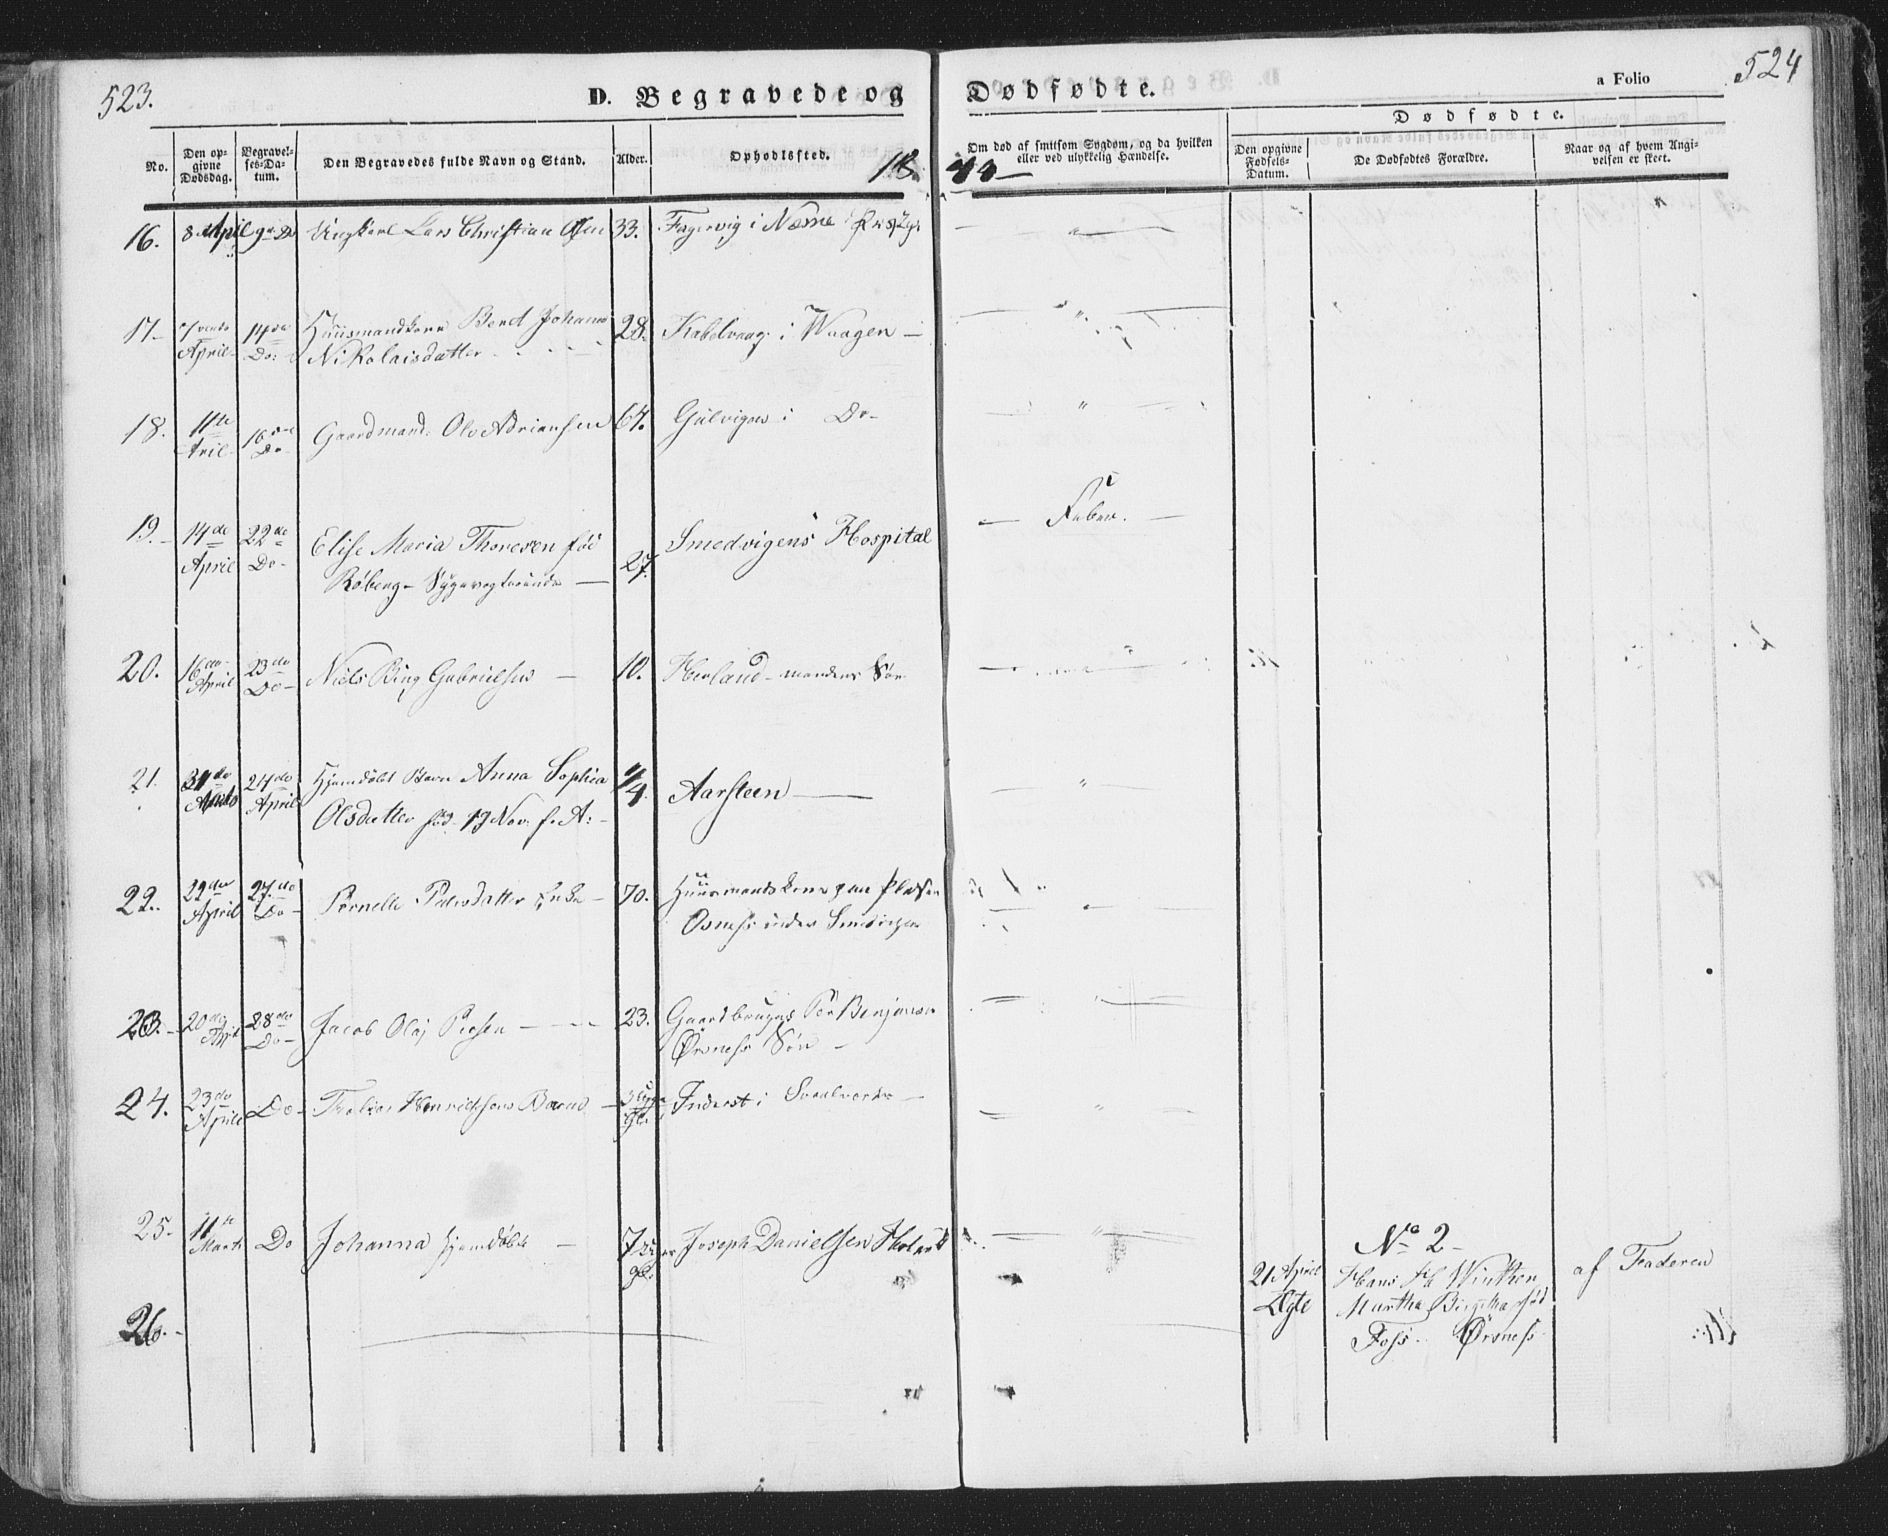 523.
D. Begravede og Dødfødte.
a Folio 524
No.
Den opgivne Dødsdag.
Begravelses-Datum.
Den Begravedes fulde Navn og Stand.
Alder.
Opholdssted.
Om død af smitsom Sygdom, og da hvilken
eller ved ulykkelig Hændelse.
Dødfødte.
Den opgivne Fødsels-Datum.
De Dødfødtes Forældre.
Naar og af hvem Angivelsen er skeet.
1844
16. 8 April 9de Do Ungkarl Lars Christian Olsen 33. Fagervig i Næsne
17. 7vende 14de Huusmandkone Beret Johanna 28. Kabelvaag i Waagen
April Do: Nikolaisdatter
18. 11te 16de Gaardmand Ole Adriansen 64. Gulvigen i Do
April Do
19. 14de 22de Elise Maria Thoresen fød 27. Smedvigens Hospital Feber.
April Do Røberg
20. 16de 23de Niels Bing Gabrielsen 10. Herland mandens Søn
April Do
21. 24de Hjemdøbt Barn Anna Sophia 1/4 Aarsteen
April Olsdatter fød 19 Nov: f. A:
22. 22de 27de Pernelle Pedersdatter Enke 70. Huusmandskone paa Pladsen
April Do Osness under Smedvigen
23. 20de 28de Jacob Olaj 23. Gaardbruger Benjamin
April Do Ørsness Søn
24. 23de Do Tobias Henrichsens Barn 3 Uger Inderst i
April gl.
25. 11te Do Johanna hjemdøbt 7 Uger Joseph Danielsen
Marts gl.
No 2
21 April Hans Winther af Faderen
Ægte Martha Birgitha fød
Foss Ørsness
26.